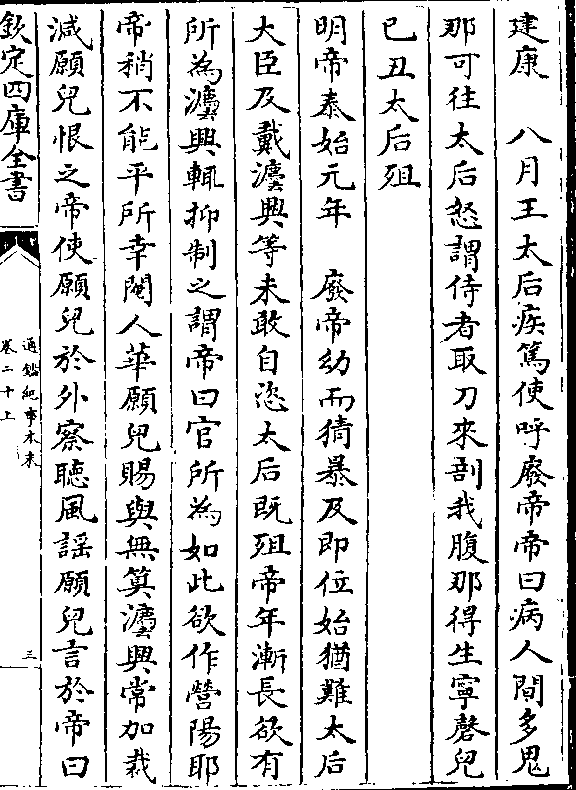 建康　八月王太后疾篤使呼廢帝帝曰病人間多鬼
那可往太后怒謂侍者取刀來剖我腹那得生寧馨兒
己丑太后殂
明帝泰始元年　廢帝幼而猜暴及即位始猶難太后
大臣及戴灋興等未敢自恣太后既殂帝年漸長欲有
所為灋興輒抑制之謂帝曰官所為如此欲作營陽耶
帝稍不能平所幸閹人華願兒賜與無筭灋興常加裁
減願兒恨之帝使願兒於外察聴風謡願兒言於帝曰
欽定四庫全書
通鑑紀事本末
卷二十上
三